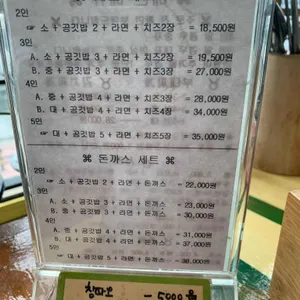 2인
☞ 소 + 공깃밥 2 + 라면 + 치즈2장 = 18,500원
3인
A. 소 + 공깃밥 3 + 라면 + 치즈2장 = 19,500원
B. 중 + 공깃밥 3 + 라면 + 치즈3장 = 27,000원
4인
A. 중 + 공깃밥 4 + 라면 + 치즈3장 = 28,000원
B. 대 + 공깃밥 4 + 라면 + 치즈4장 = 34,000원
5인
☞ 대 + 공깃밥 5 + 라면 + 치즈5장 = 35,000원
⌘ 돈까스 세트 ⌘
2인
☞ 소 + 공깃밥 2 + 라면 + 돈까스 = 22,000원
3인
A. 소 + 공깃밥 3 + 라면 + 돈까스 = 23,000원
B. 중 + 공깃밥 3 + 라면 + 돈까스 = 30,000원
4인
A. 중 + 공깃밥 4 + 라면 + 돈까스 = 31,000원
B. 대 + 공깃밥 4 + 라면 + 돈까스 = 37,000원
5인
☞ 대 + 공깃밥 5 + 라면 + 돈까스 = 38,000원